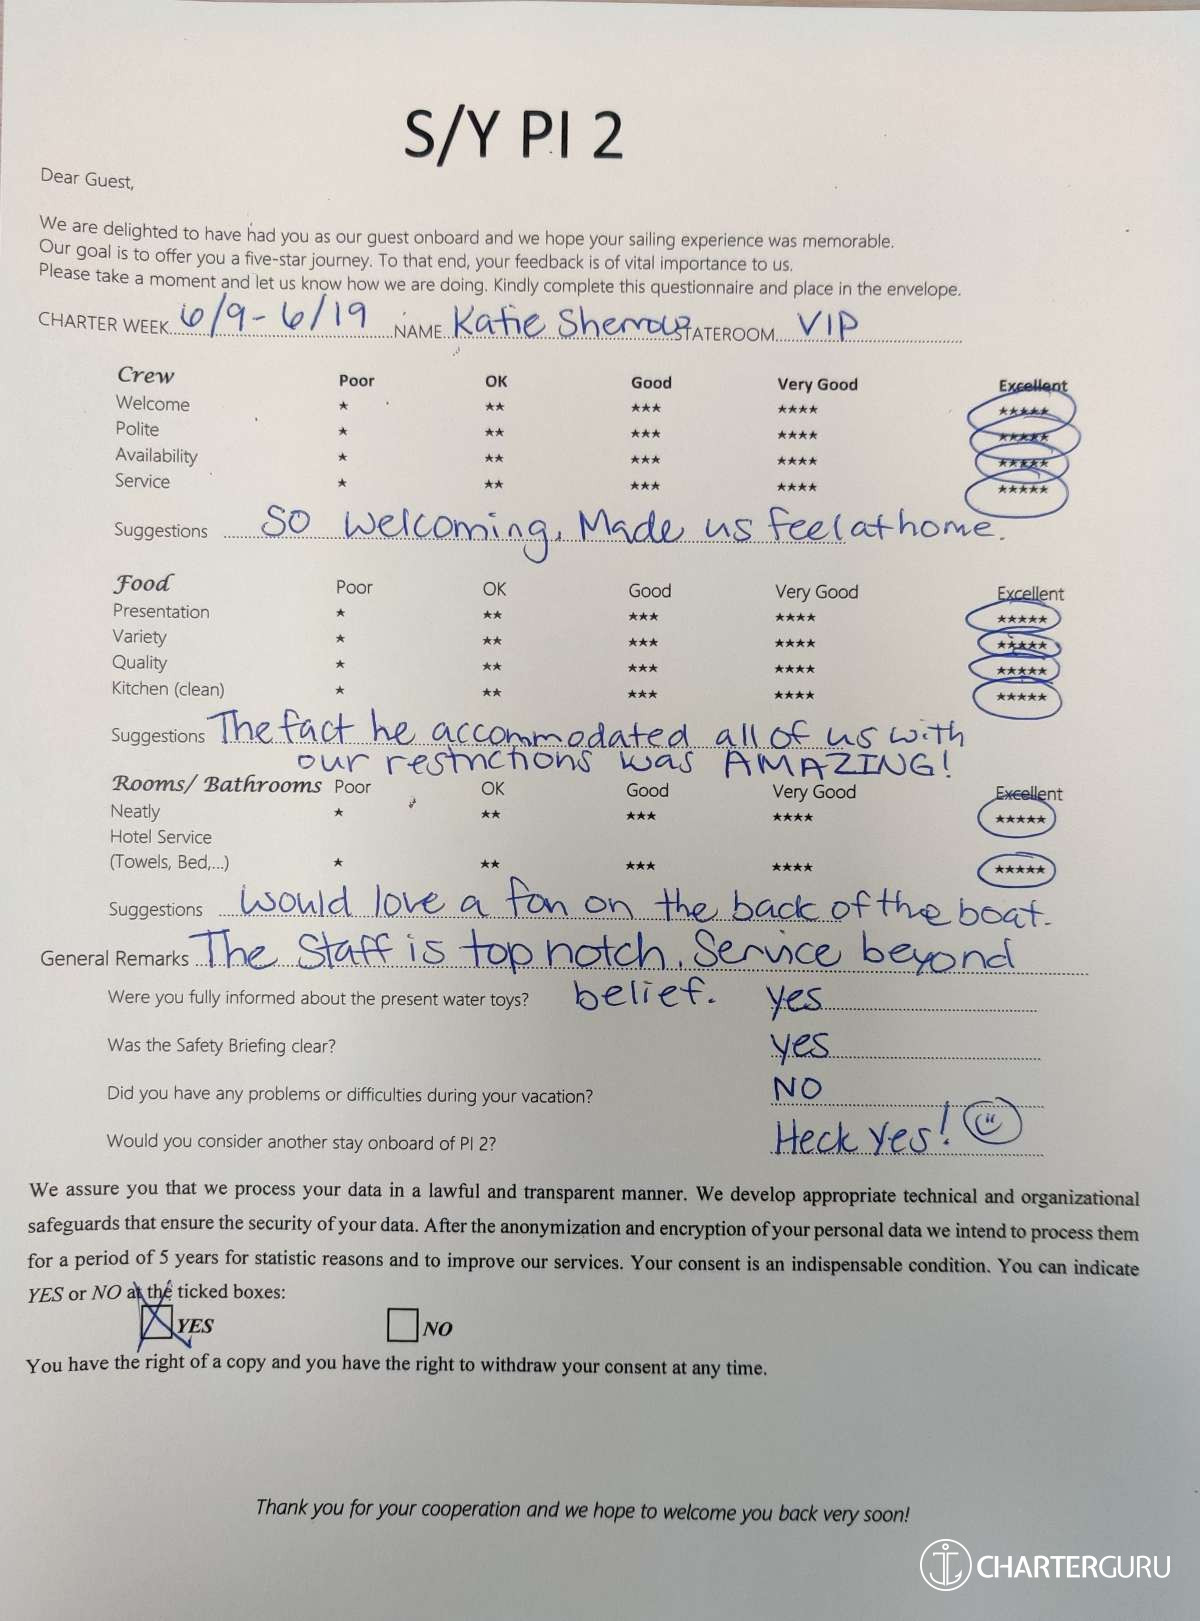 S/Y PI 2
Dear Guest,
We are delighted to have had you as our guest onboard and we hope your sailing experience was memorable.
Our goal is to offer you a five-star journey. To that end, your feedback is of vital importance to us.
Please take a moment and let us know how we are doing. Kindly complete this questionnaire and place in the envelope.
CHARTER WEEK 6/9 - 6/19 NAME Katie STATEROOM VIP
Crew Poor OK Good Very Good Excellent
Welcome ★ ★★ ★★★ ★★★★ ★★★★★
Polite ★ ★★ ★★★ ★★★★ ★★★★★
Availability ★ ★★ ★★★ ★★★★ ★★★★★
Service ★ ★★ ★★★ ★★★★ ★★★★★
Suggestions So welcoming, Made us feel at home.
Food Poor OK Good Very Good Excellent
Presentation ★ ★★ ★★★ ★★★★ ★★★★★
Variety ★ ★★ ★★★ ★★★★ ★★★★★
Quality ★ ★★ ★★★ ★★★★ ★★★★★
Kitchen (clean) ★ ★★ ★★★ ★★★★ ★★★★★
Suggestions The fact he accommodated all of us with
our restrictions was AMAZING!
Rooms/ Bathrooms Poor OK Good Very Good Excellent
Neatly ★ ★★ ★★★ ★★★★ ★★★★★
Hotel Service
(Towels, Bed,...) ★ ★★ ★★★ ★★★★ ★★★★★
Suggestions would love a fan on the back of the boat.
General Remarks The Staff is top notch. Service beyond
belief.
Were you fully informed about the present water toys? yes
Was the Safety Briefing clear? yes
Did you have any problems or difficulties during your vacation? NO
Would you consider another stay onboard of PI 2? Heck yes!
We assure you that we process your data in a lawful and transparent manner. We develop appropriate technical and organizational
safeguards that ensure the security of your data. After the anonymization and encryption of your personal data we intend to process them
for a period of 5 years for statistic reasons and to improve our services. Your consent is an indispensable condition. You can indicate
YES or NO at the ticked boxes:
YES NO
You have the right of a copy and you have the right to withdraw your consent at any time.
Thank you for your cooperation and we hope to welcome you back very soon!
CHARTERGURU